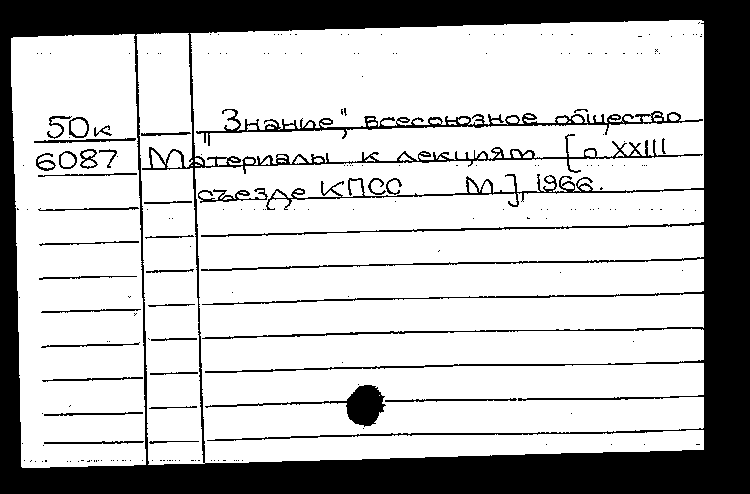 50к „Знание", всесоюзное общество
6087 Материалы к лекциям [о XXIII
съезде КПСС М.], 1966.